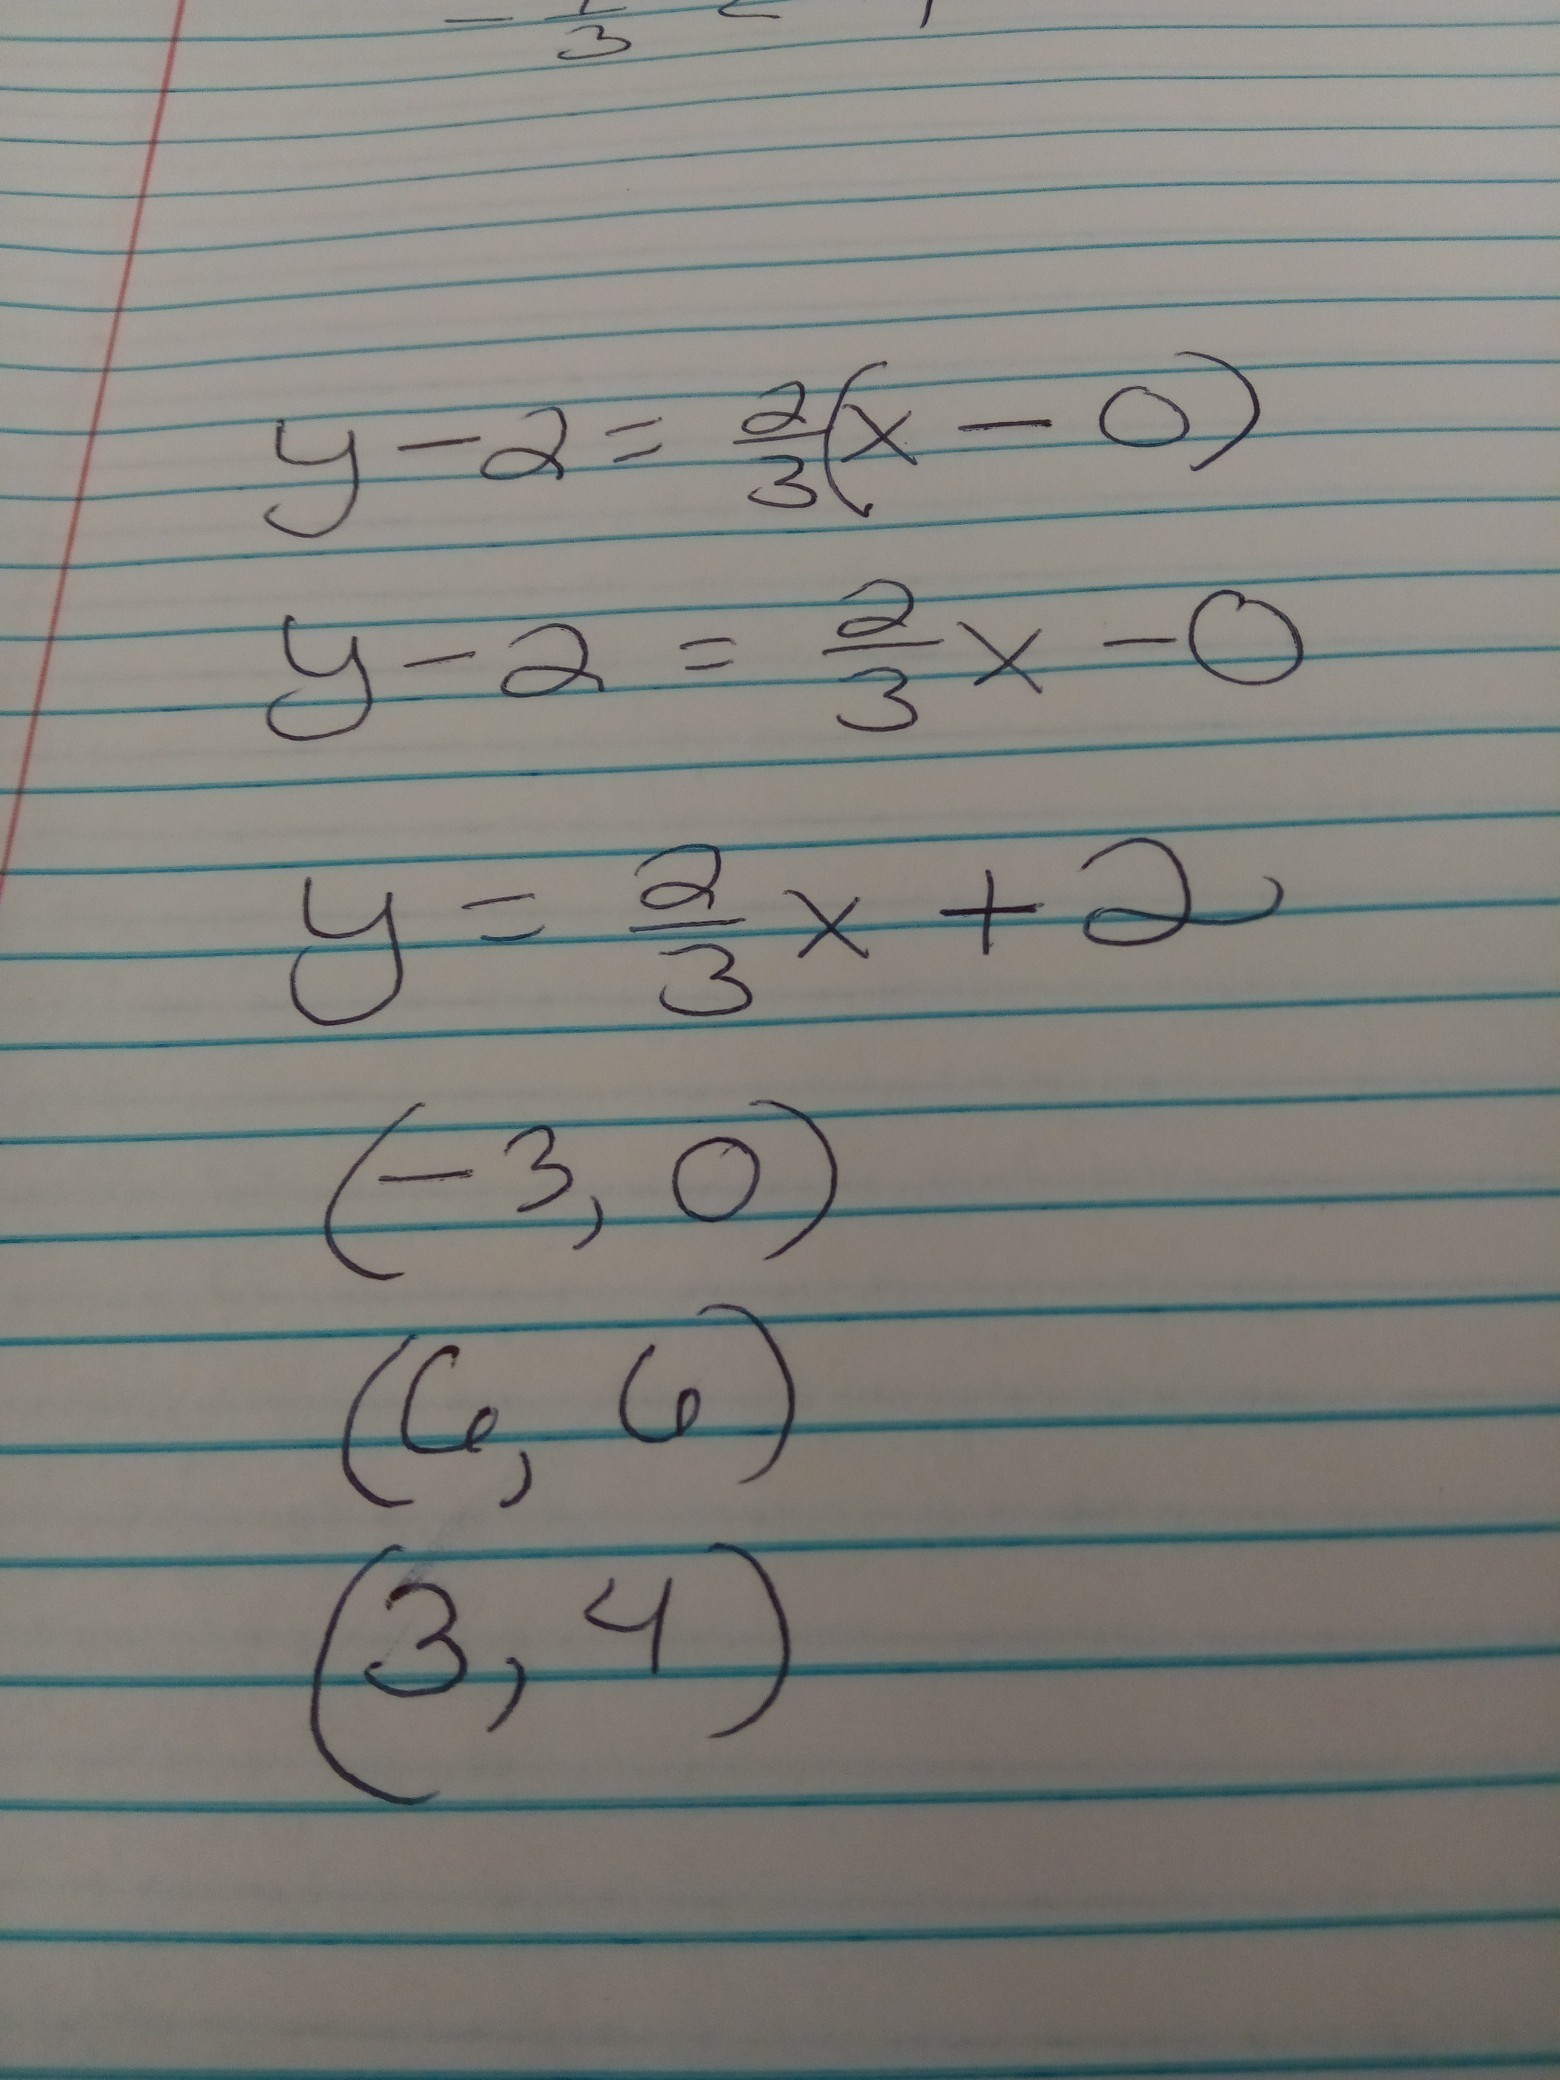 - 1/3
y - 2 = 2/3 (x - 0)
y - 2 = 2/3 x - 0
y = 2/3 x + 2
(-3, 0)
(6, 6)
(3, 4)